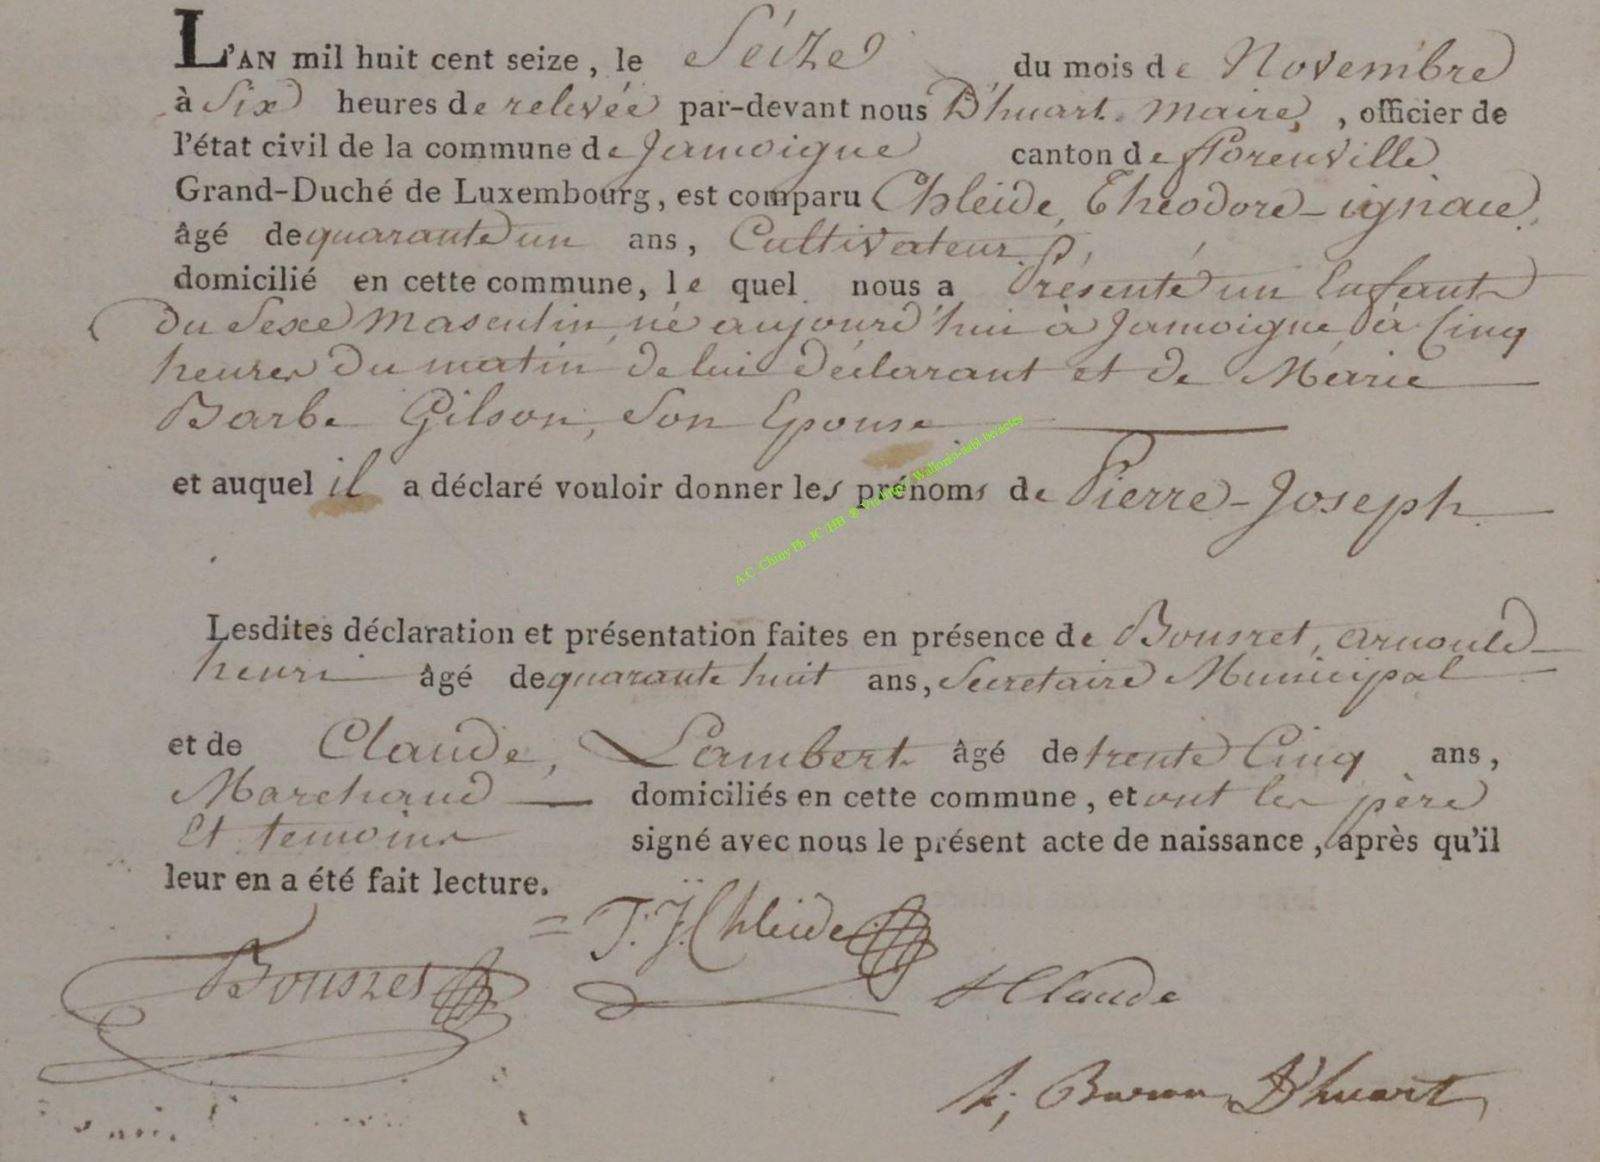 L'AN mil huit cent seize, le Séize du mois de Novembre
à Six heures de relevée par-devant nous D'huart. maire, officier de
l'état civil de la commune de Jamoigne canton de florenville
Grand-Duché de Luxembourg, est comparu Chleide, Théodore-ignace,
âgé de quarante un ans, Cultivateur,
domicilié en cette commune, le quel nous a Présenté un Enfant
Du Sexe Masculin, né aujourd'hui à Jamoigne, à Cinq
heures Du matin de lui déclarant et de Marie
Barbe Gilson, Son Epouse
et auquel il a déclaré vouloir donner les prénoms de Pierre-Joseph
Lesdites déclaration et présentation faites en présence de Bousret, arnould
henri âgé de quarante huit ans, Secretaire Municipal
et de Claude, Lambert âgé de trente Cinq ans,
Marchand domiciliés en cette commune, et ont les père
Et temoins signé avec nous le présent acte de naissance, après qu'il
leur en a été fait lecture.
= T. J. Chleide
Bousret
Claude
Baron D'huart